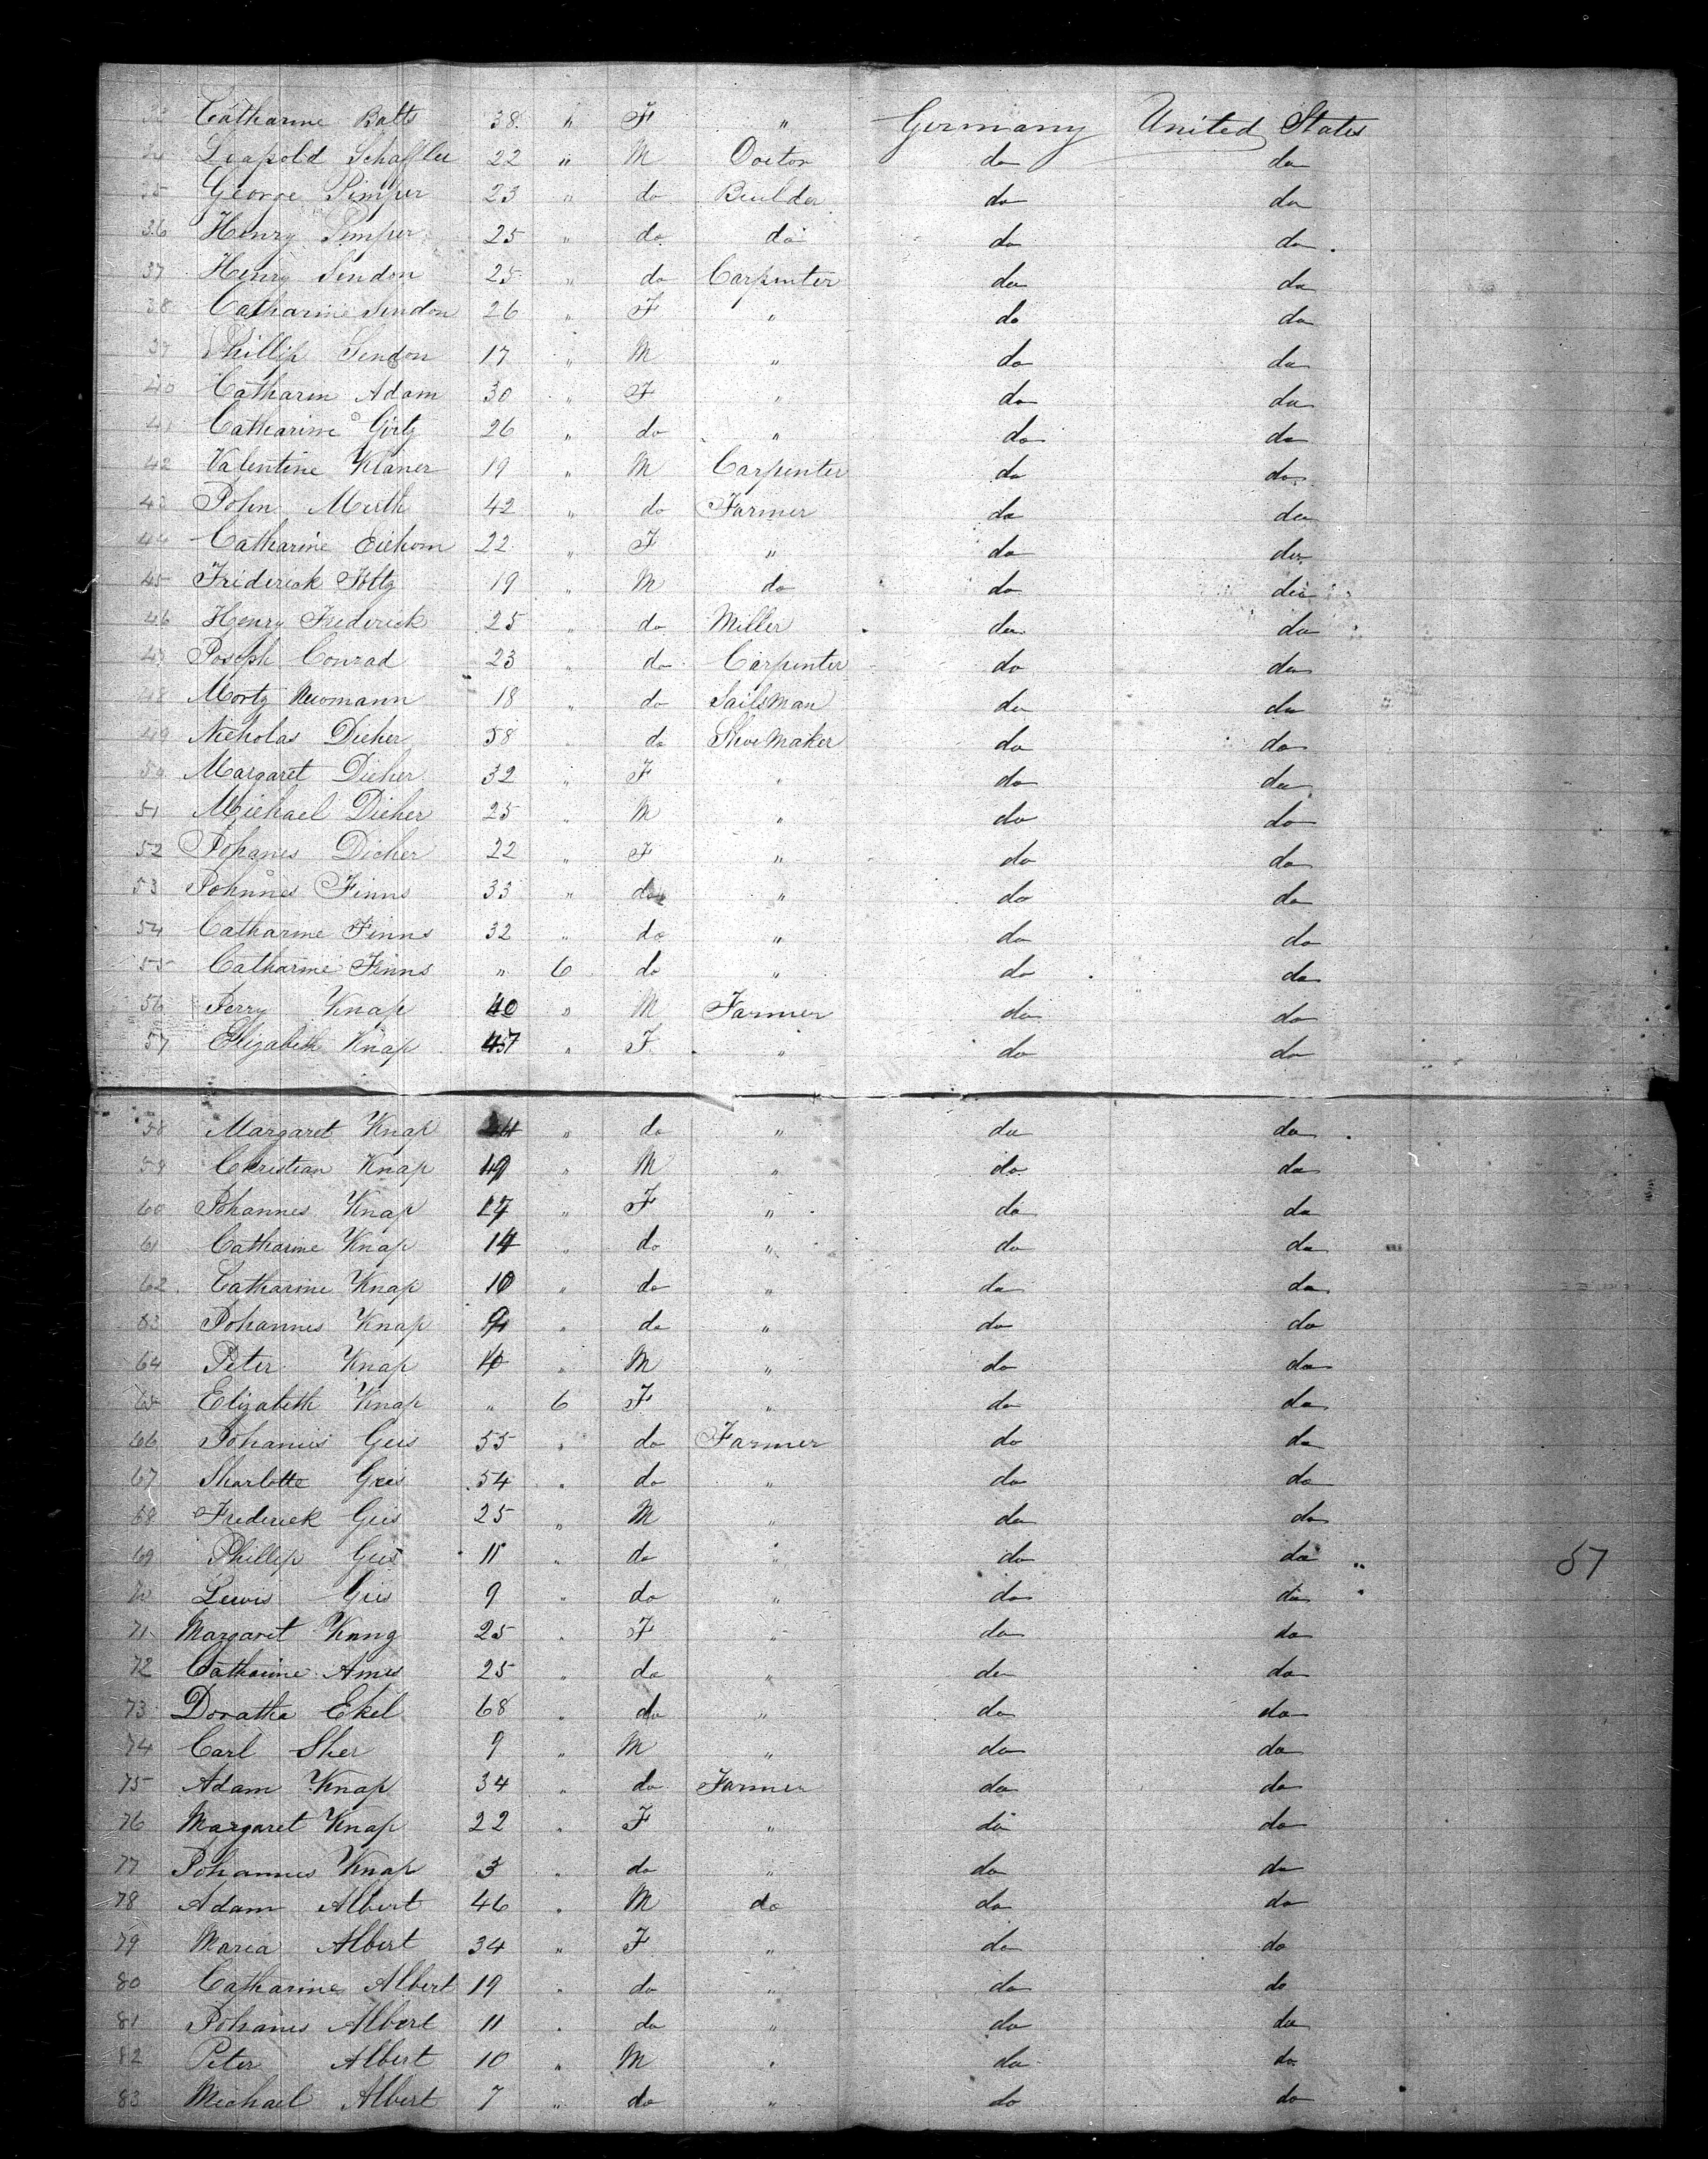 33 Catharine Balts 38 " F " Germany United States
34 Leapold Schaffler 22 " M Doctor do do
35 George Pimper 23 " do Builder do do
36 Henry Pimper 25 " do do do do
37 Henry Sendon 25 " do Carpenter do do
38 Catharine Sendon 26 " F " do do
39 Phillip Sendon 17 " M " do do
40 Catharin Adam 30 " F " do do
41 Catharine Girtz 26 " do " do do
42 Valentine Klaner 19 " M Carpenter do do
43 John Muth 42 " do Farmer do do
44 Catharine Eichorn 22 " F " do do
45 Friderick Foltz 19 " M do do do
46 Henry Frederick 25 " do Miller do do
47 Joseph Conrad 23 " do Carpenter do do
48 Mortz Newmann 18 " do Sailsman do do
49 Nicholas Dicher 58 " do Shoe Maker do do
50 Margaret Dicher 32 " F " do do
51 Michael Dicher 25 " M " do do
52 Johanes Dicher 22 " F " do do
53 Johnnes Finns 33 " do " do do
54 Catharine Finns 32 " do " do do
55 Catharine Finns " 6 do " do do
56 Perry Knap 40 " M Farmer do do
57 Elizabeth Knap 47 " F " do do
58 Margaret Knap " do " do do
59 Christian Knap 19 " M " do do
60 Johannes Knap 17 " F " do do
61 Catharine Knap 14 " do " do do
62 Catharine Knap 10 " do " do do
63 Johannes Knap 9 " do " do do
64 Peter Knap " M " do do
65 Elizabeth Knap " 6 F " do do
66 Johanies Geis 55 " do Farmer do do
67 Sharlotte Geis 54 " do " do do
68 Frederick Geis 25 " M " do do
69 Phillip Geis 11 " do " do do 57
70 Lewis Geis 9 " do " do do
71 Margaret Kung 25 " F " do do
72 Catharine Ames 25 " do " do do
73 Doratha Ekel 68 " do " do do
74 Carl Sher 9 " M " do do
75 Adam Knap 34 " do Farmer do do
76 Margaret Knap 22 " F " do do
77 Johannes Knap 3 " do " do do
78 Adam Albert 46 " M do do do
79 Maria Albert 34 " F " do do
80 Catharine Albert 19 " do " do do
81 Johanes Albert 11 " do " do do
82 Peter Albert 10 " M " do do
83 Michael Albert 7 " do " do do